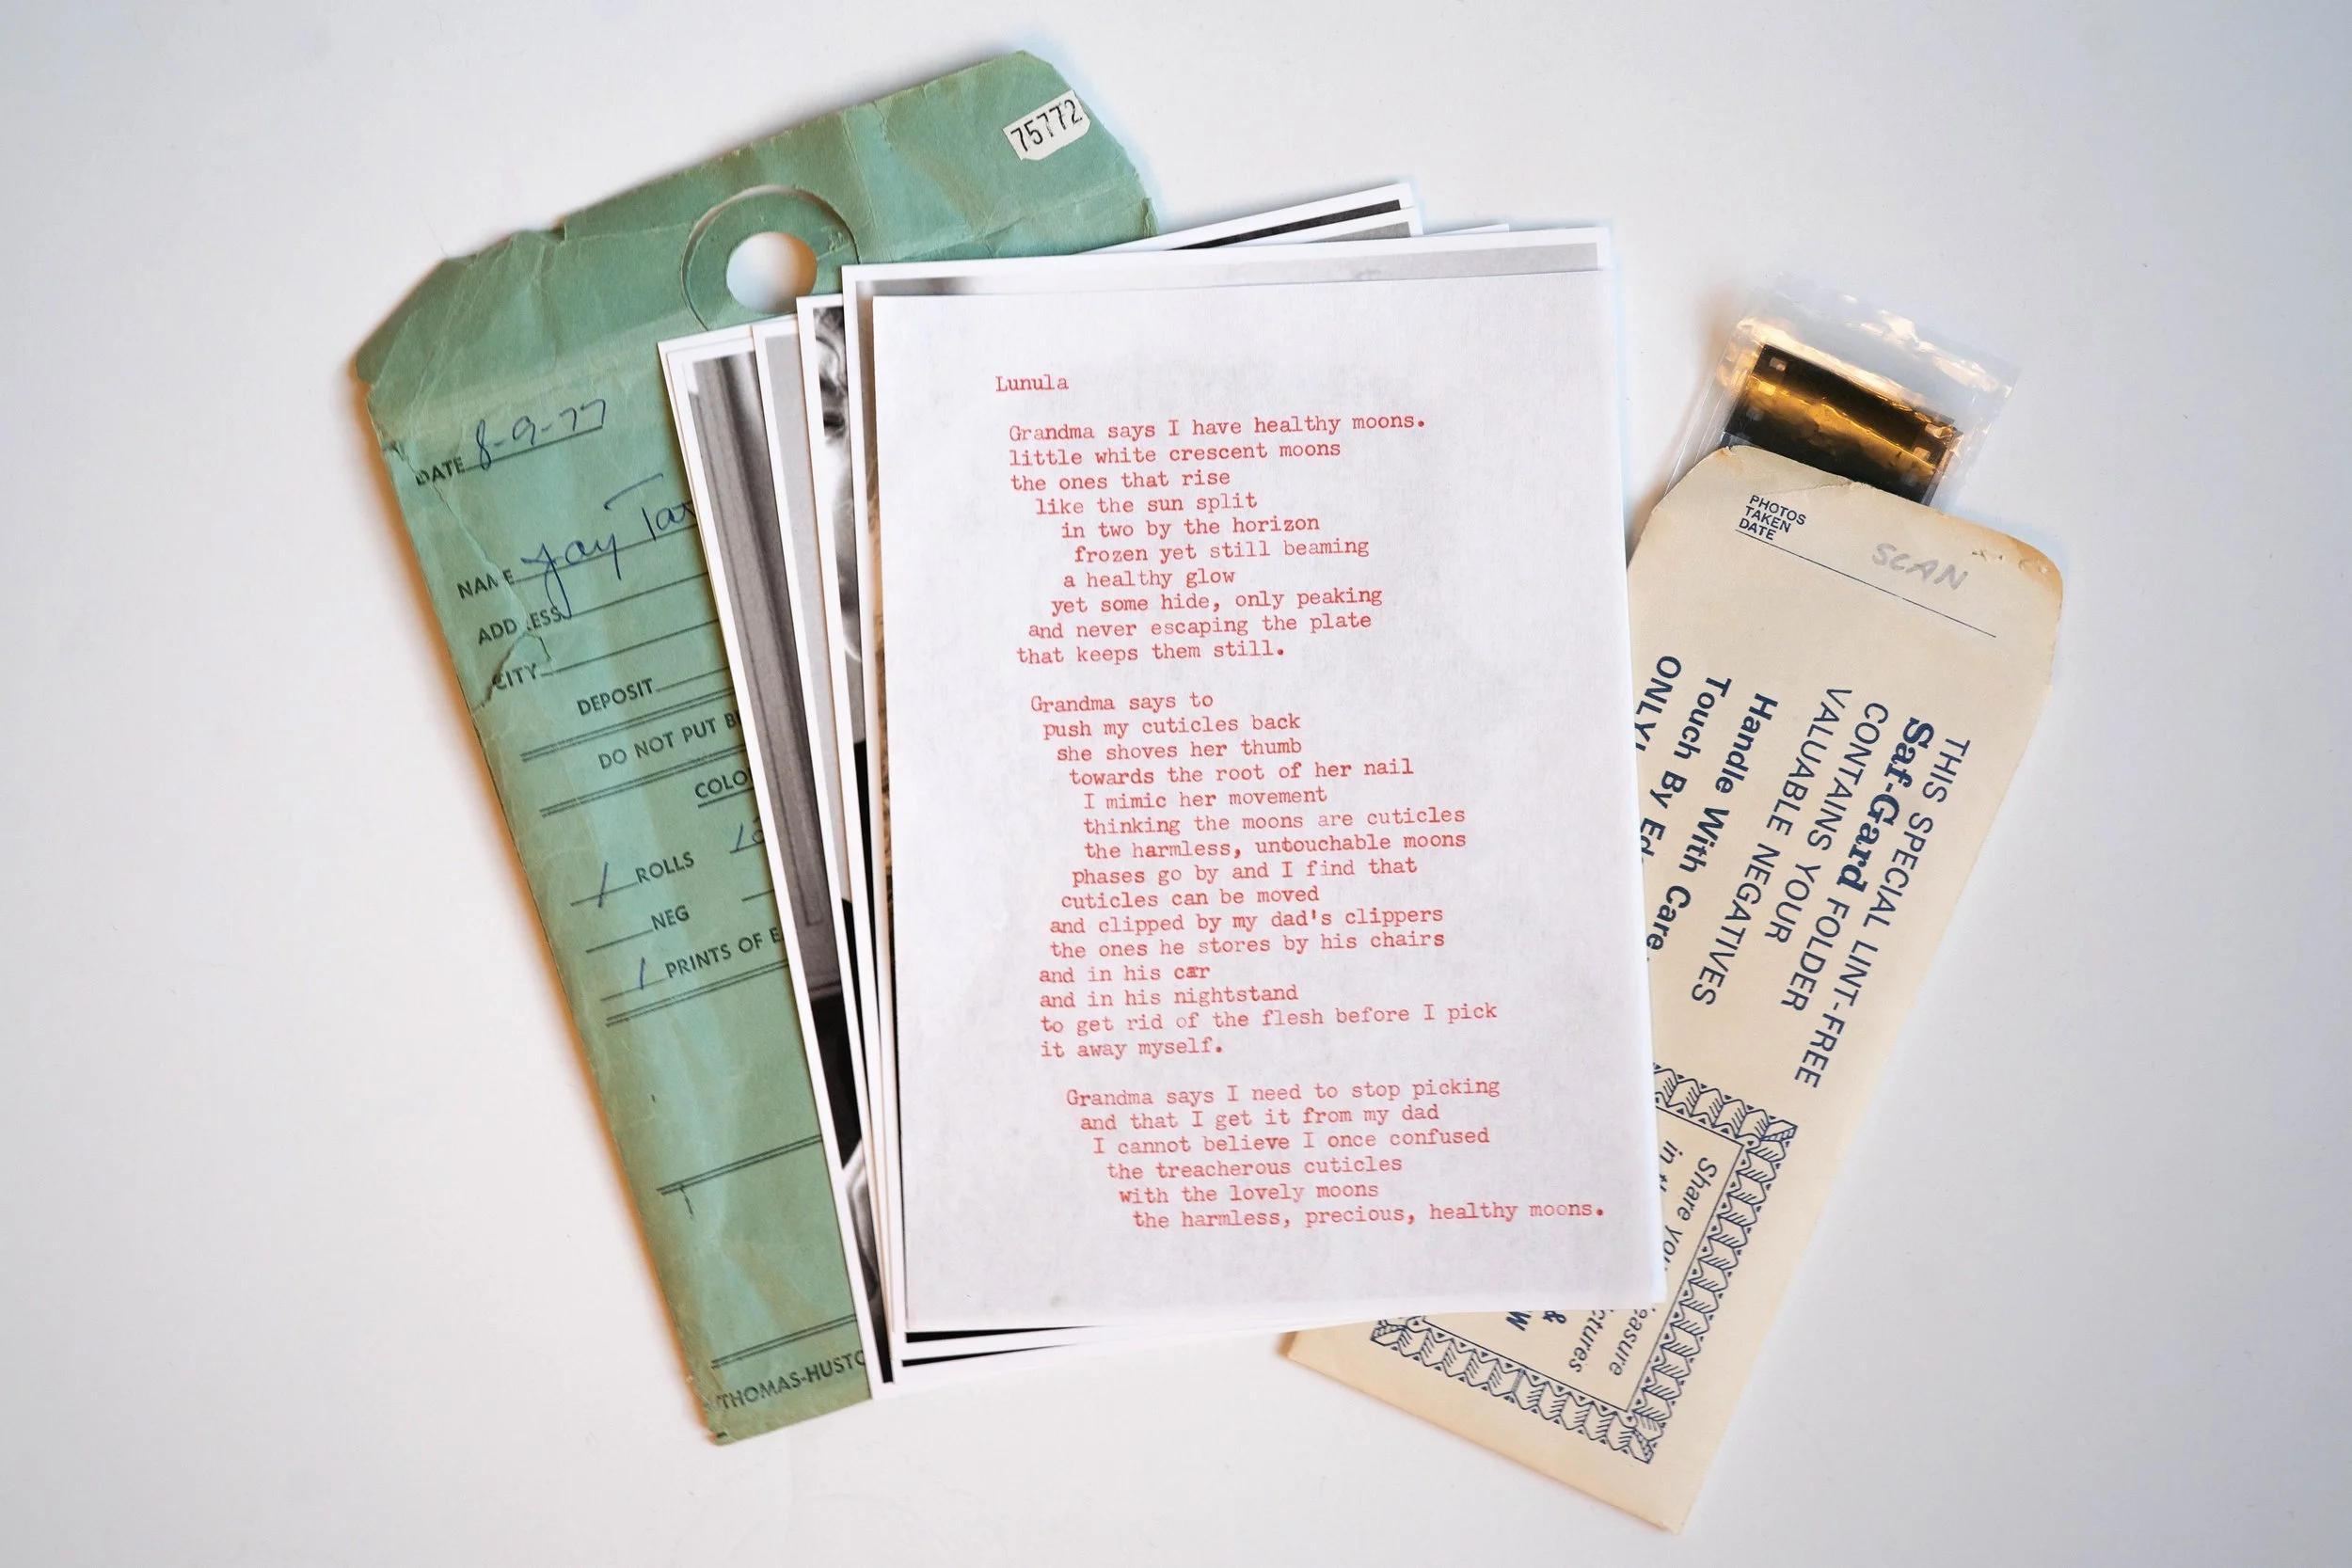 75772
DATE 8-9-77
NAME Jay
ADDRESS
CITY
DEPOSIT
DO NOT PUT
1 ROLLS
NEG
1 PRINTS OF
THOMAS-
Lunula
Grandma says I have healthy moons.
little white crescent moons
the ones that rise
like the sun split
in two by the horizon
frozen yet still beaming
a healthy glow
yet some hide, only peaking
and never escaping the plate
that keeps them still.
Grandma says to
push my cuticles back
she shoves her thumb
towards the root of her nail
I mimic her movement
thinking the moons are cuticles
the harmless, untouchable moons
phases go by and I find that
cuticles can be moved
and clipped by my dad's clippers
the ones he stores by his chairs
and in his car
and in his nightstand
to get rid of the flesh before I pick
it away myself.
Grandma says I need to stop picking
and that I get it from my dad
I cannot believe I once confused
the treacherous cuticles
with the lovely moons
the harmless, precious, healthy moons.
PHOTOS
TAKEN
DATE
SCAN
THIS SPECIAL LINT-FREE
Saf-Gard FOLDER
CONTAINS YOUR
VALUABLE NEGATIVES
Handle With Care
Touch By
ONLY!
Share
in
&